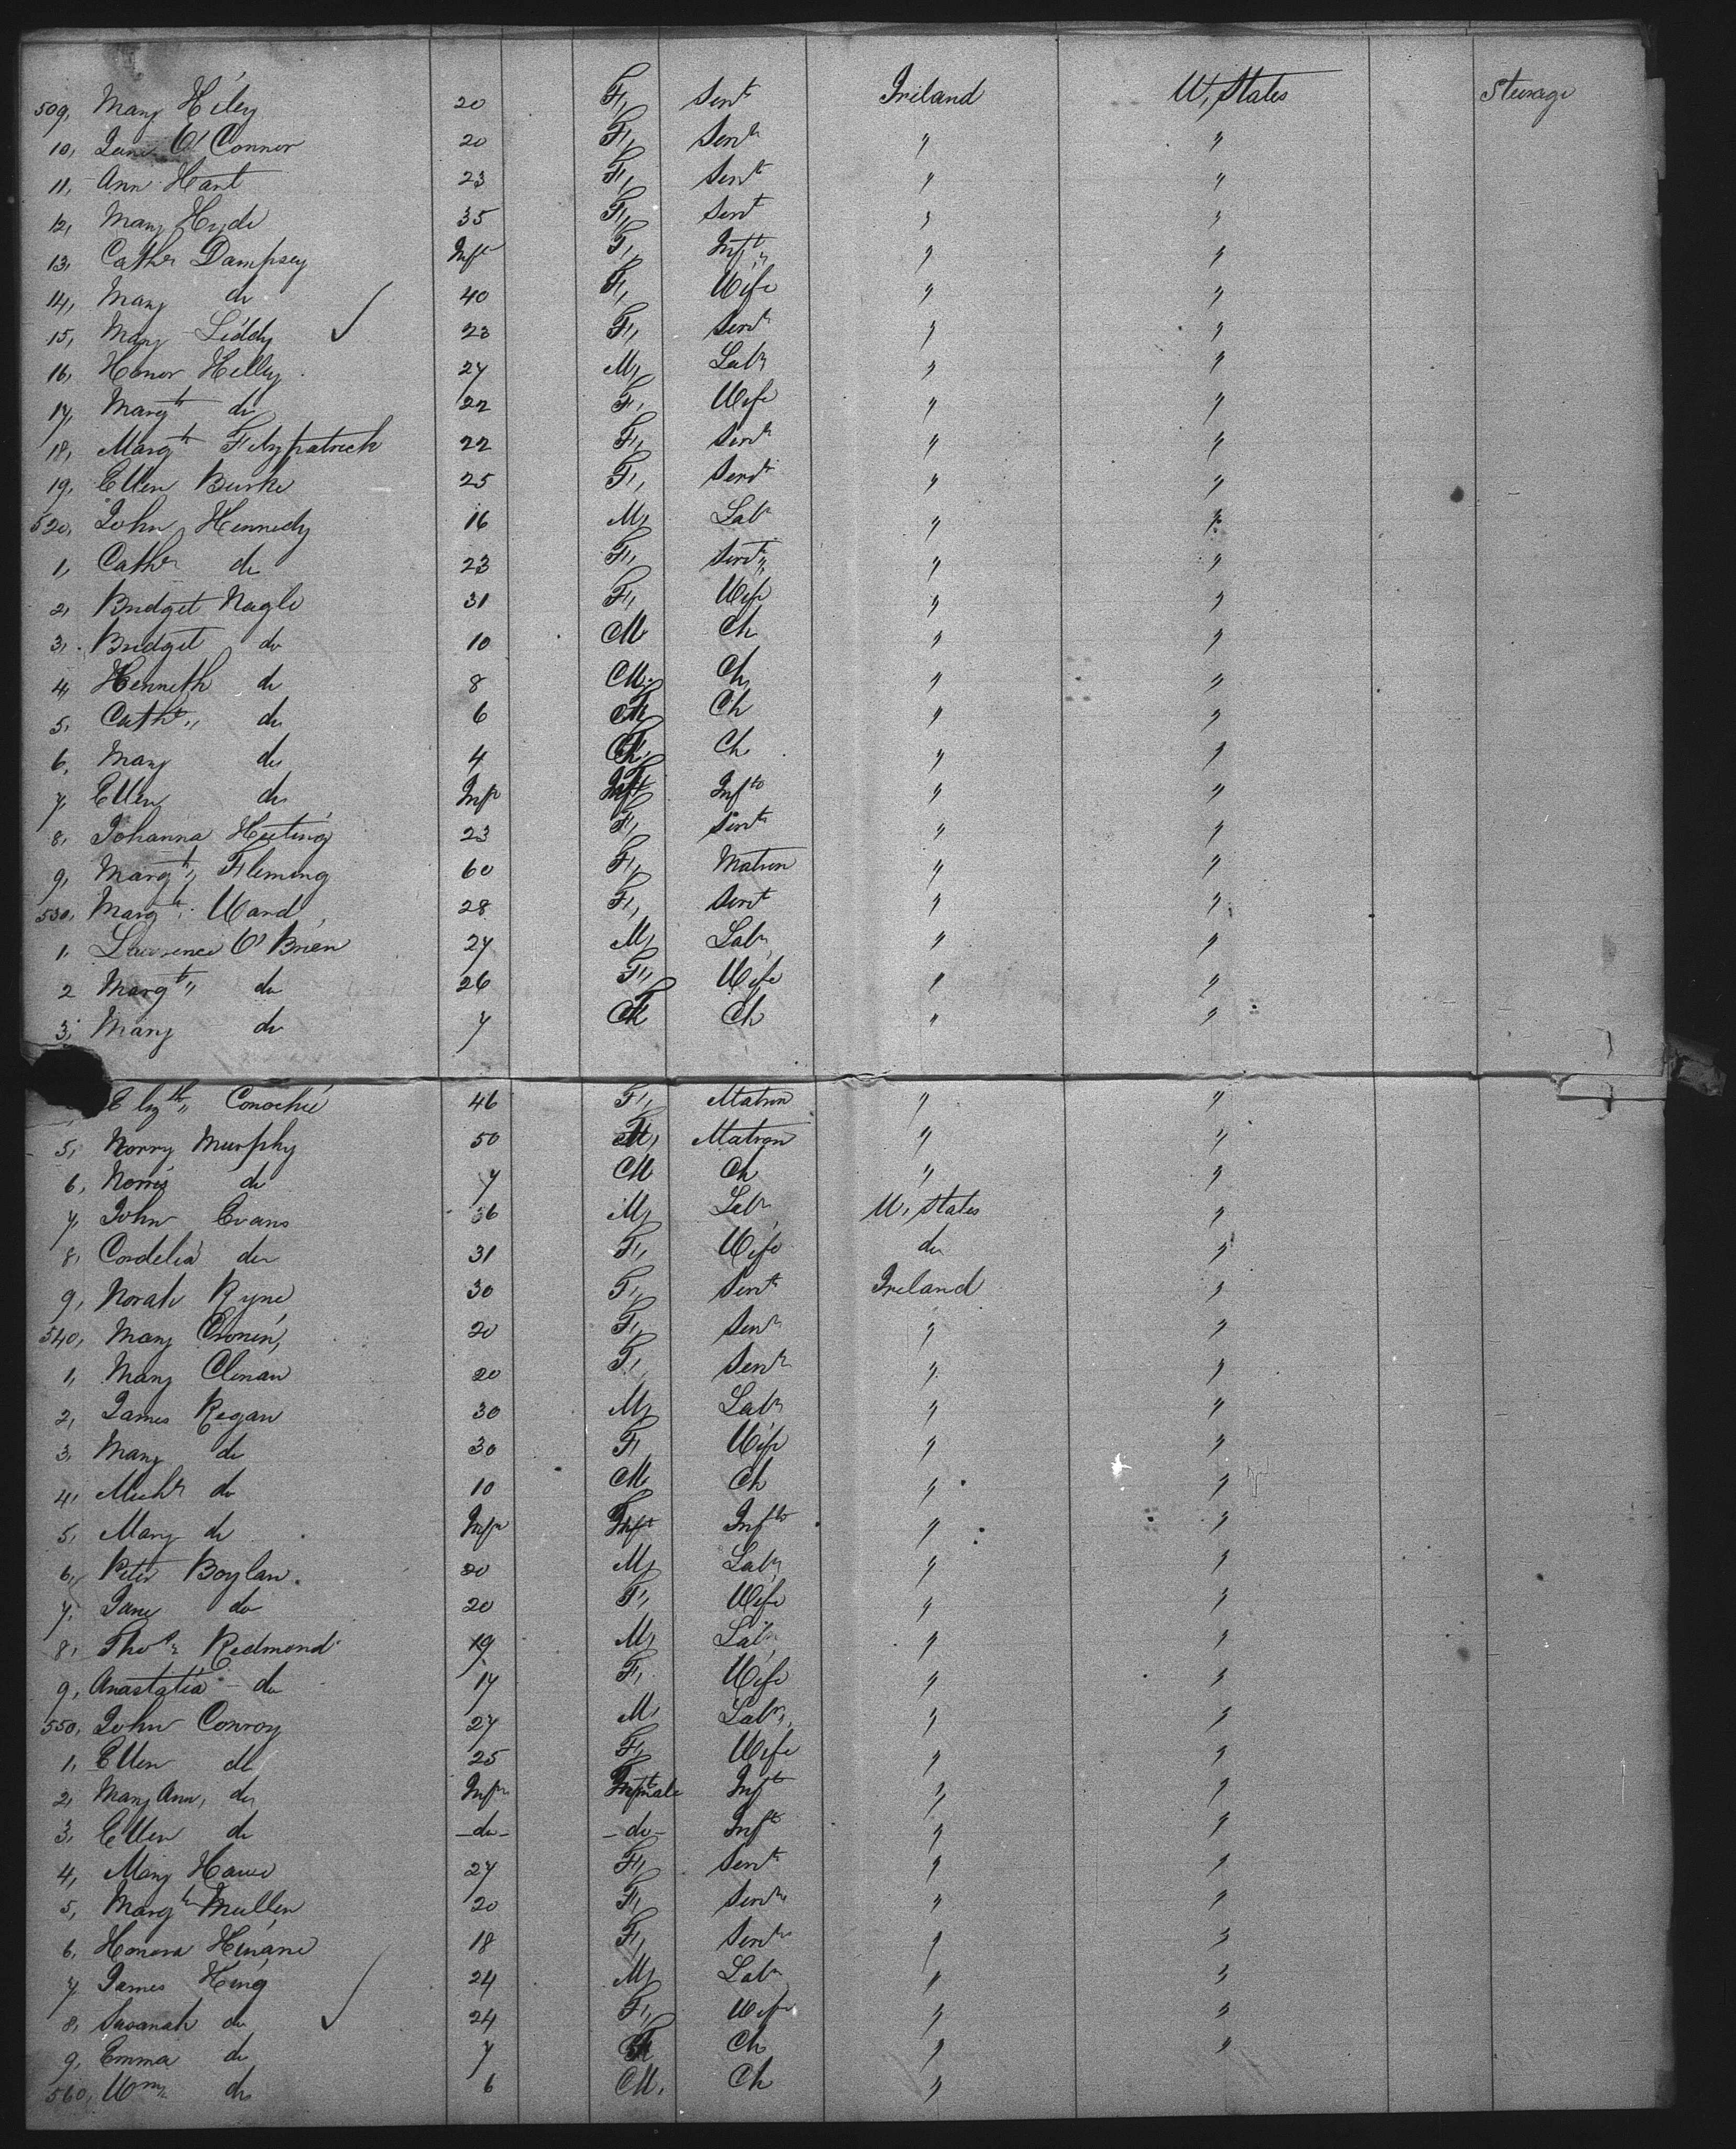 509, Mary Hiley 20 F, Servt Ireland U, States Steerage
10, Jane O'Connor 20 F, Servt " "
11, Ann Hart 23 F, Servt " "
12, Mary Hyde 35 F, Servt " "
13, Cathe Dampsey Inft F, Inft " "
14, Mary do 40 F, Wife " "
15, Mary Liddy 23 F, Servt " "
16, Honor Helley 27 M, Labr " "
17, Margt do 22 F, Wife " "
18, Margt Fitzpatrick 22 F, Servt " "
19, Ellen Burke 25 F, Servt " "
520, John Kennedy 16 M, Labr " "
1, Cathe do 23 F, Servt " "
2, Bridget Nagle 31 F, Wife " "
3, Bridget do 10 M Ch " "
4, Henneth do 8 M, Ch, " "
5, Cathe " do 6 F Ch " "
6, Mary do 4 F Ch " "
7, Ellen do Inft F Inft " "
8, Johanna Keeting 23 F, Servt " "
9, Margt " Fleming 60 F, Matron " "
530, Margt " Ward 28 F, Servt " "
1, Lawrence O'Brien 27 M, Labr " "
2 Margt " do 26 F, Wife " "
3, Mary do 7 F Ch " "
Elizth " Conochie 46 F, Matron " "
5, Norry Murphy 50 F, Matron " "
6, Norris do 7 M Ch " "
7, John Evans 36 M, Labr U, States "
8, Cordelia do 31 F, Wife do "
9, Norah Ryne 30 F, Servt Ireland "
540, Mary Cronin, 20 F, Servt " "
1, Mary Clenan 20 F, Servt " "
2, James Regan 30 M, Labr " "
3, Mary do 30 F, Wife " "
4, Michl do 10 M Ch " "
5, Mary do Inft F Inft " "
6, Peter Boylan 20 M, Labr " "
7, Jane do 20 F, Wife " "
8, Thos Redmond 19 M, Labr " "
9, Anastatia do 17 F, Wife " "
550, John Conroy 27 M, Labr " "
1, Ellen do 25 F, Wife " "
2, Mary Ann, do Inft Female Inft " "
3, Ellen do -do- -do- Inft " "
4, Mary Hawe 27 F, Servt " "
5, Margt Mullen 20 F, Servt " "
6, Honora Hinane 18 F, Servt " "
7, James King 24 M, Labr " "
8, Savanah do 24 F, Wife " "
9, Emma do 7 F Ch " "
560, Wm do 6 M, Ch "